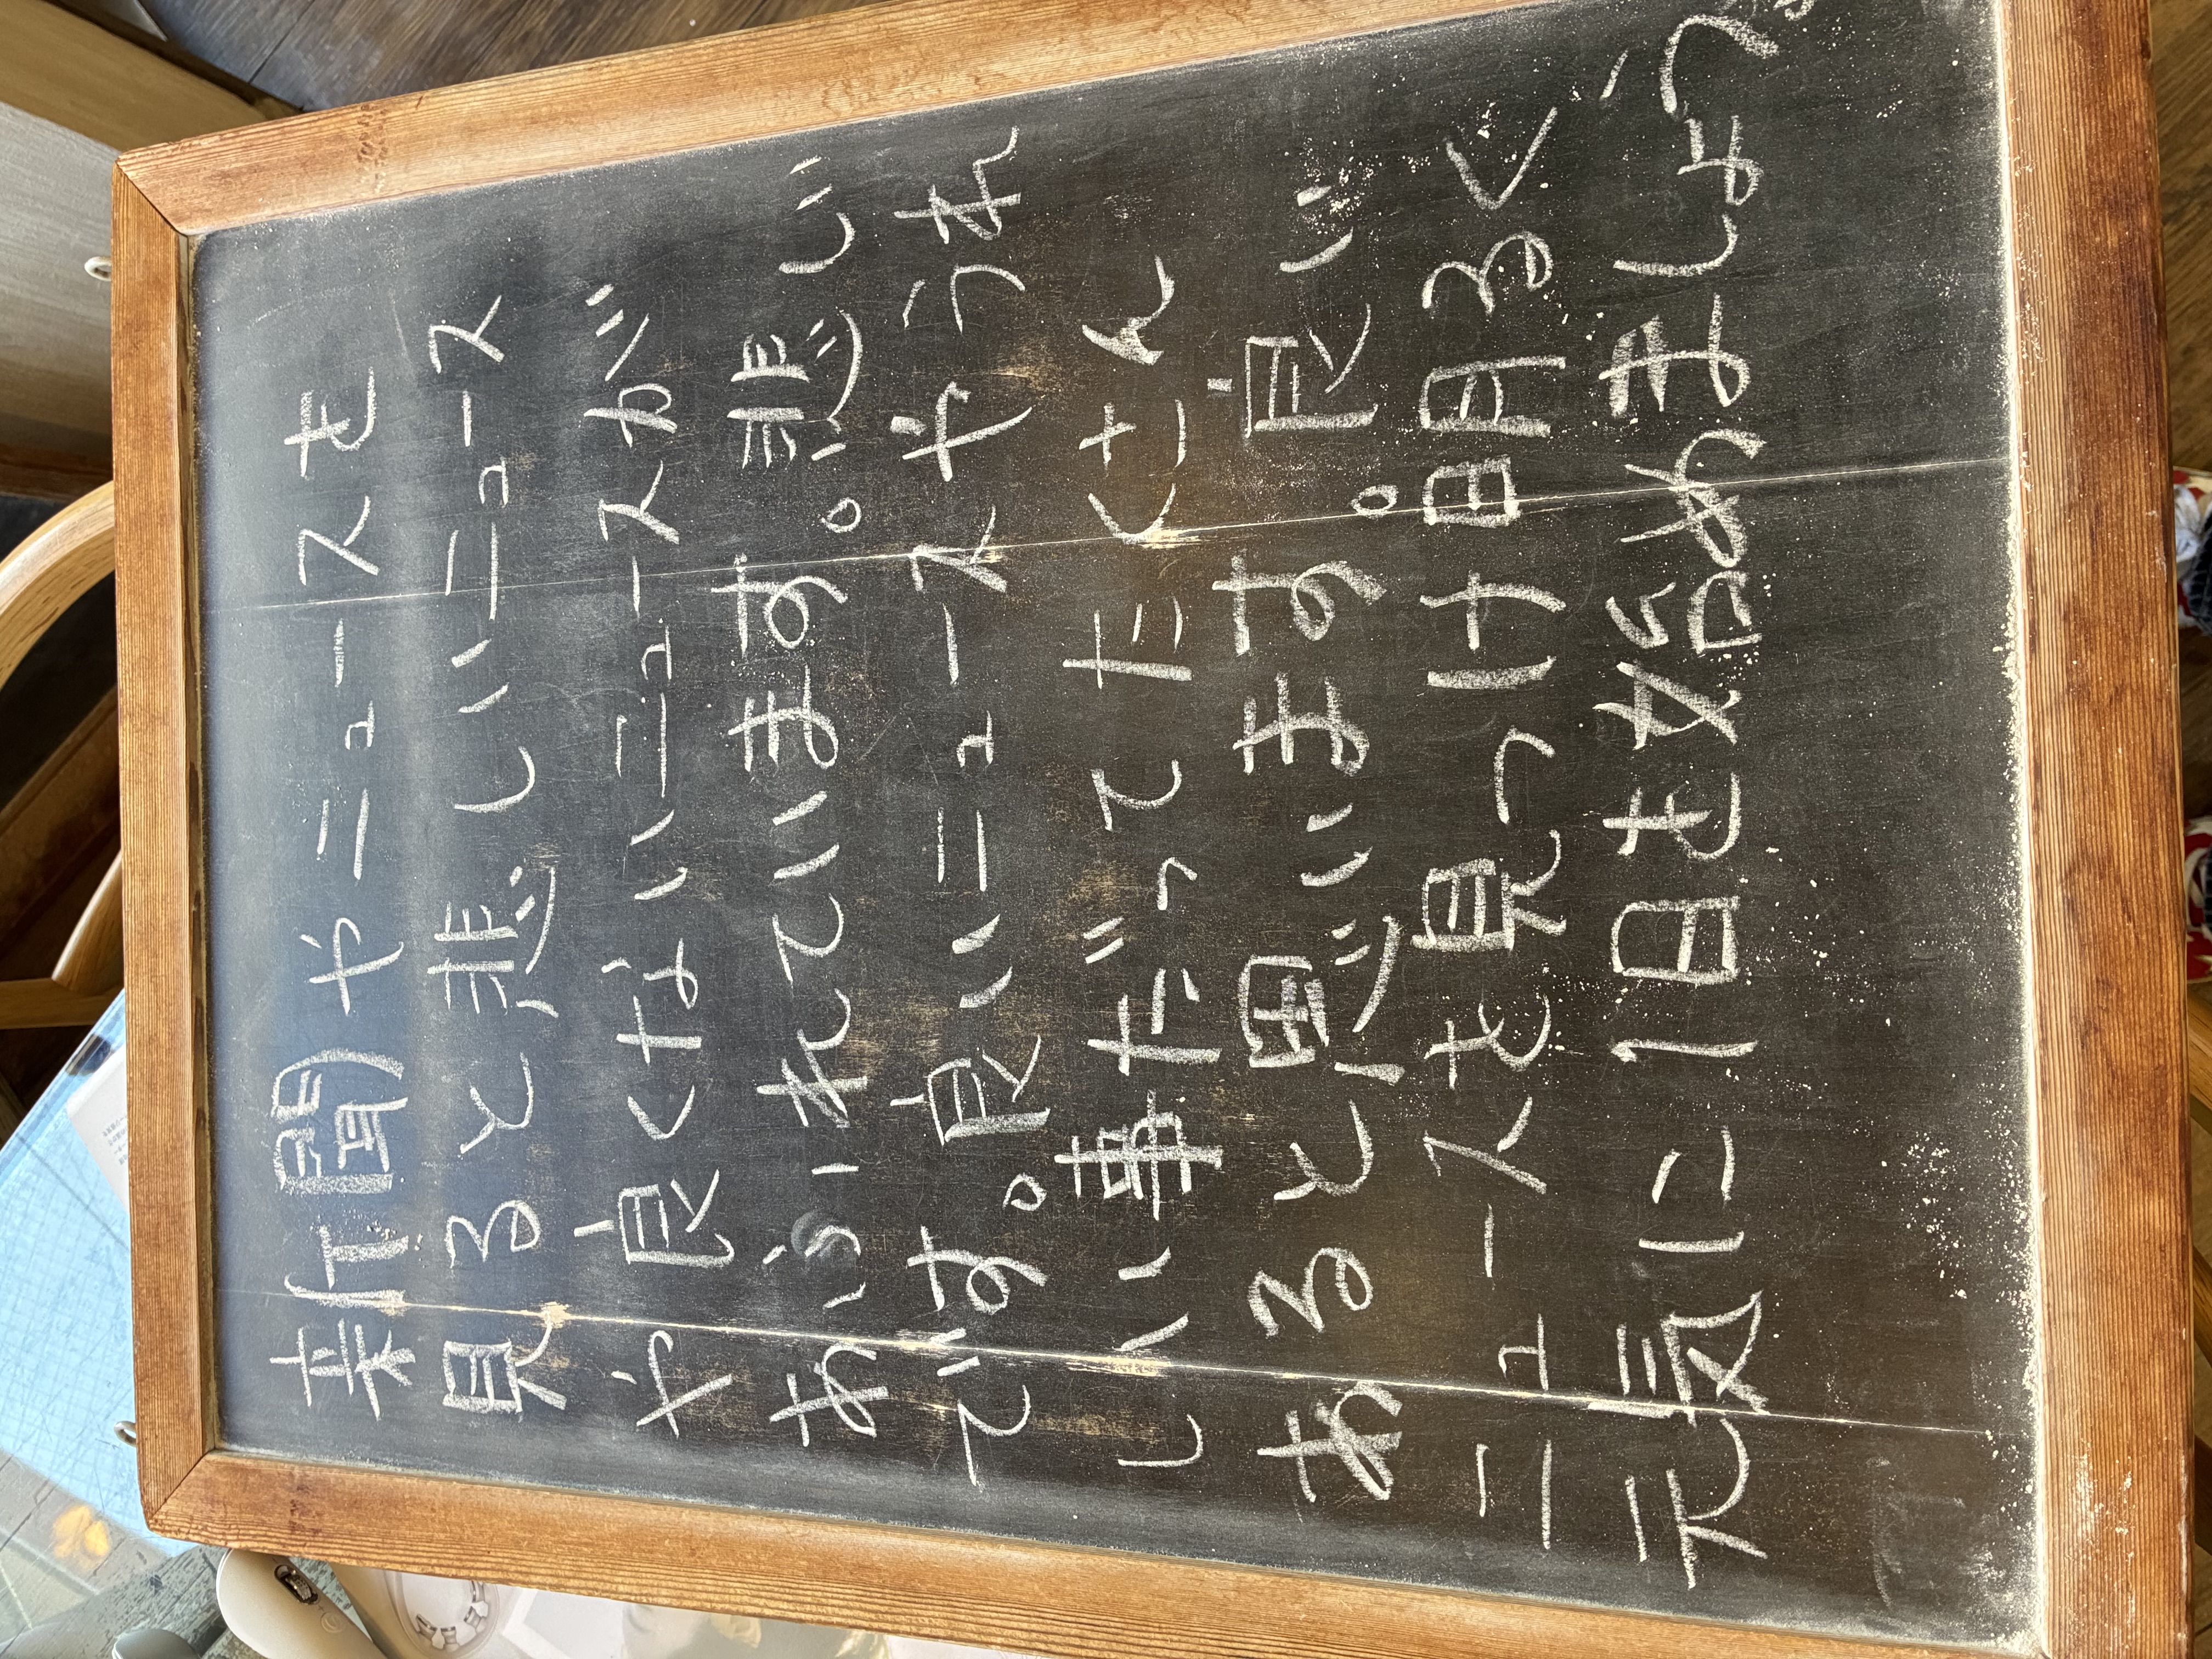 新聞やニュースを
見ると悲しいニュース
や良くないニュースが
あふれています。悲しい
です。良いニュースやうれ
しい事だってたくさん
あると思います。良い
ニュースを見つけ明るく
元気に1日を始めましょう。